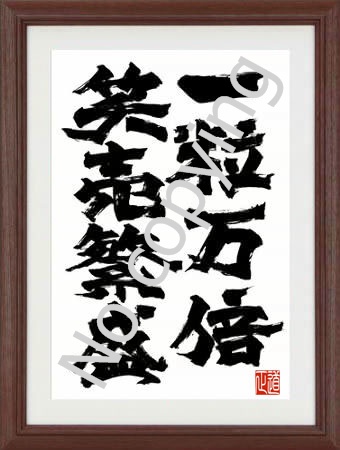 一粒万倍
笑売繁盛
正道
No copying